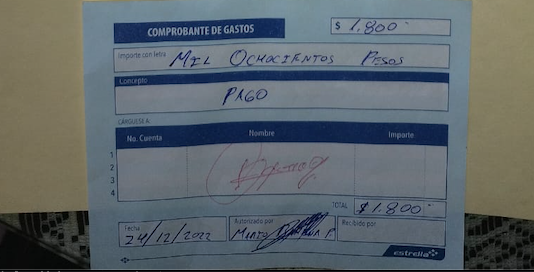 COMPROBANTE DE GASTOS
$ 1.800
Importe con letra MIL OCHOCIENTOS PESOS
Concepto
PAGO
CARGUESE A:
No. Cuenta Nombre Importe
1
2
3
4
TOTAL $ 1.800
Fecha Autorizado por Recibido por
24/12/2022
estrella